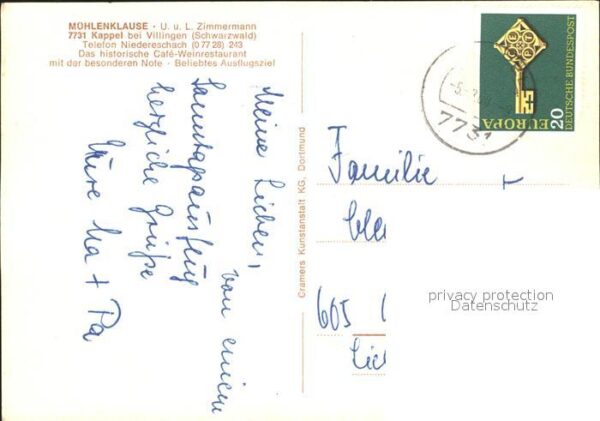 MÜHLENKLAUSE · U. u. L. Zimmermann
7731 Kappel bei Villingen (Schwarzwald)
Telefon Niedereschach (0 77 28) 243
Das historische Café-Weinrestaurant
mit der besonderen Note · Beliebtes Ausflugsziel
Meine Lieben,
von einem
Sonntagausflug
herzliche Grüße
Eure Ma + Pa
Cramers Kunstanstalt KG, Dortmund
EUROPA
20
DEUTSCHE BUNDESPOST
7731
Familie
605
privacy protection
Datenschutz